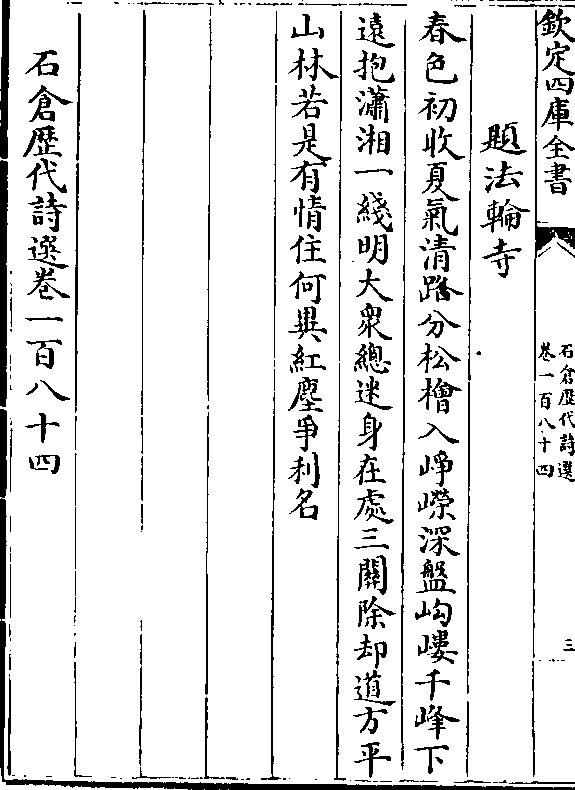 欽定四庫全書
石倉歷代詩選
卷一百八十四
三
題法輪寺
春色初收夏氣清路分松檜入崢嶸深盤岣嶁千峰下
遠抱瀟湘一綫明大衆總迷身在處三關除却道方平
山林若是有情住何異紅塵爭利名
石倉歷代詩選卷一百八十四